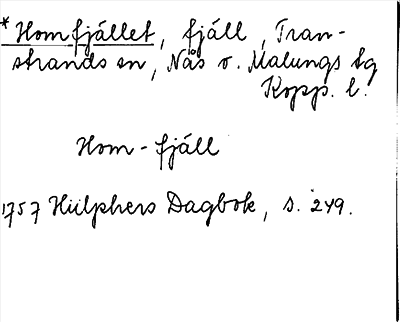 * Homfjället, fjäll, Tran-
strands sn, Nås o. Malungs tg
Kopp. l.
Hom-fjäll
1757 Hülphers Dagbok, s. 249.